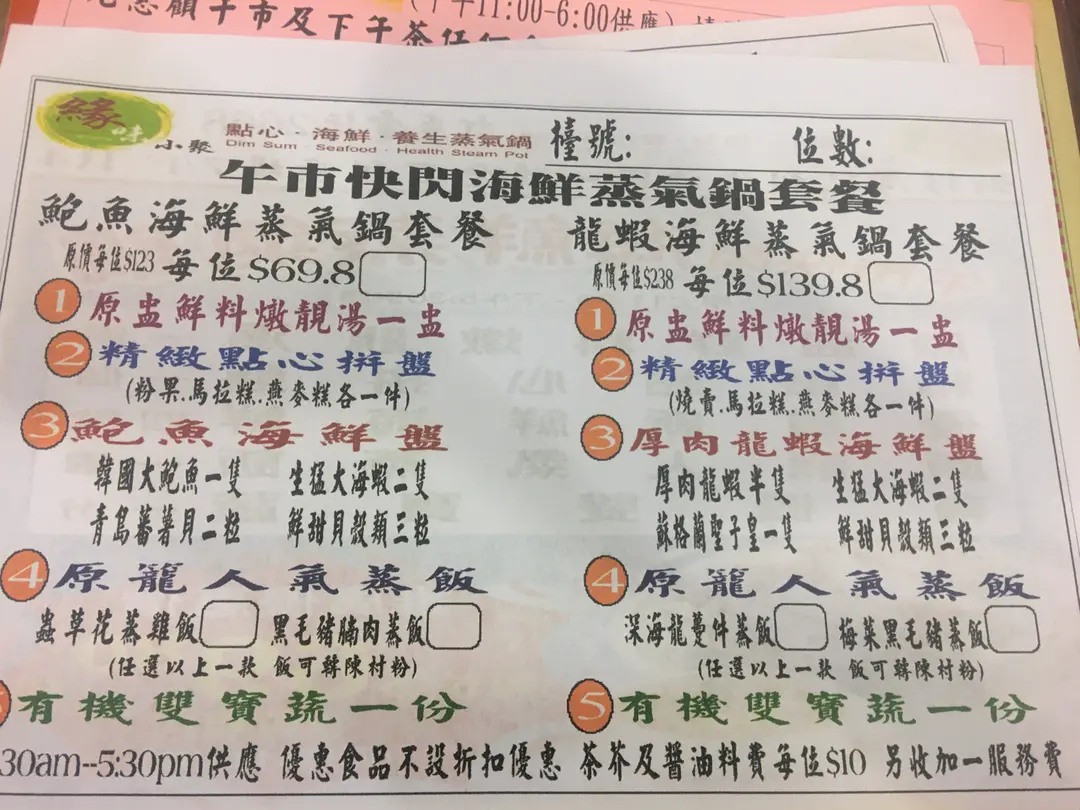 午市及下午茶
11:00-6:00供應)
緣味小聚
點心·海鮮·養生蒸氣鍋
Dim Sum Seafood · Health Steam Pot
檯號: 位數:
午市快閃海鮮蒸氣鍋套餐
鮑魚海鮮蒸氣鍋套餐
原價每位$123 每位$69.8
1 原盅鮮料燉靚湯一盅
2 精緻點心拼盤
(粉果.馬拉糕.燕麥糕各一件)
3 鮑魚海鮮盤
韓國大鮑魚一隻 生猛大海蝦二隻
青島蕃薯貝二粒 鮮甜貝殼類三粒
4 原籠人氣蒸飯
蟲草花蒸雞飯 黑毛豬腩肉蒸飯
(任選以上一款 飯可轉陳村粉)
有機雙寶蔬一份
龍蝦海鮮蒸氣鍋套餐
原價每位$238 每位$139.8
1 原盅鮮料燉靚湯一盅
2 精緻點心拼盤
(燒賣.馬拉糕.燕麥糕各一件)
3 厚肉龍蝦海鮮盤
厚肉龍蝦半隻 生猛大海蝦二隻
蘇格蘭聖子皇一隻 鮮甜貝殼類三粒
4 原籠人氣蒸飯
深海龍躉件蒸飯 梅菜黑毛豬蒸飯
(任選以上一款 飯可轉陳村粉)
5 有機雙寶蔬一份
30am--5:30pm供應 優惠食品不設折扣優惠 茶芥及醬油料費每位$10 另收加一服務費